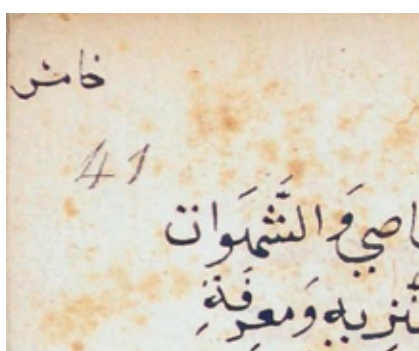 خامس
41
ـاصي وَالشَّهَوات
ـنزيه وَمعرفَةِ